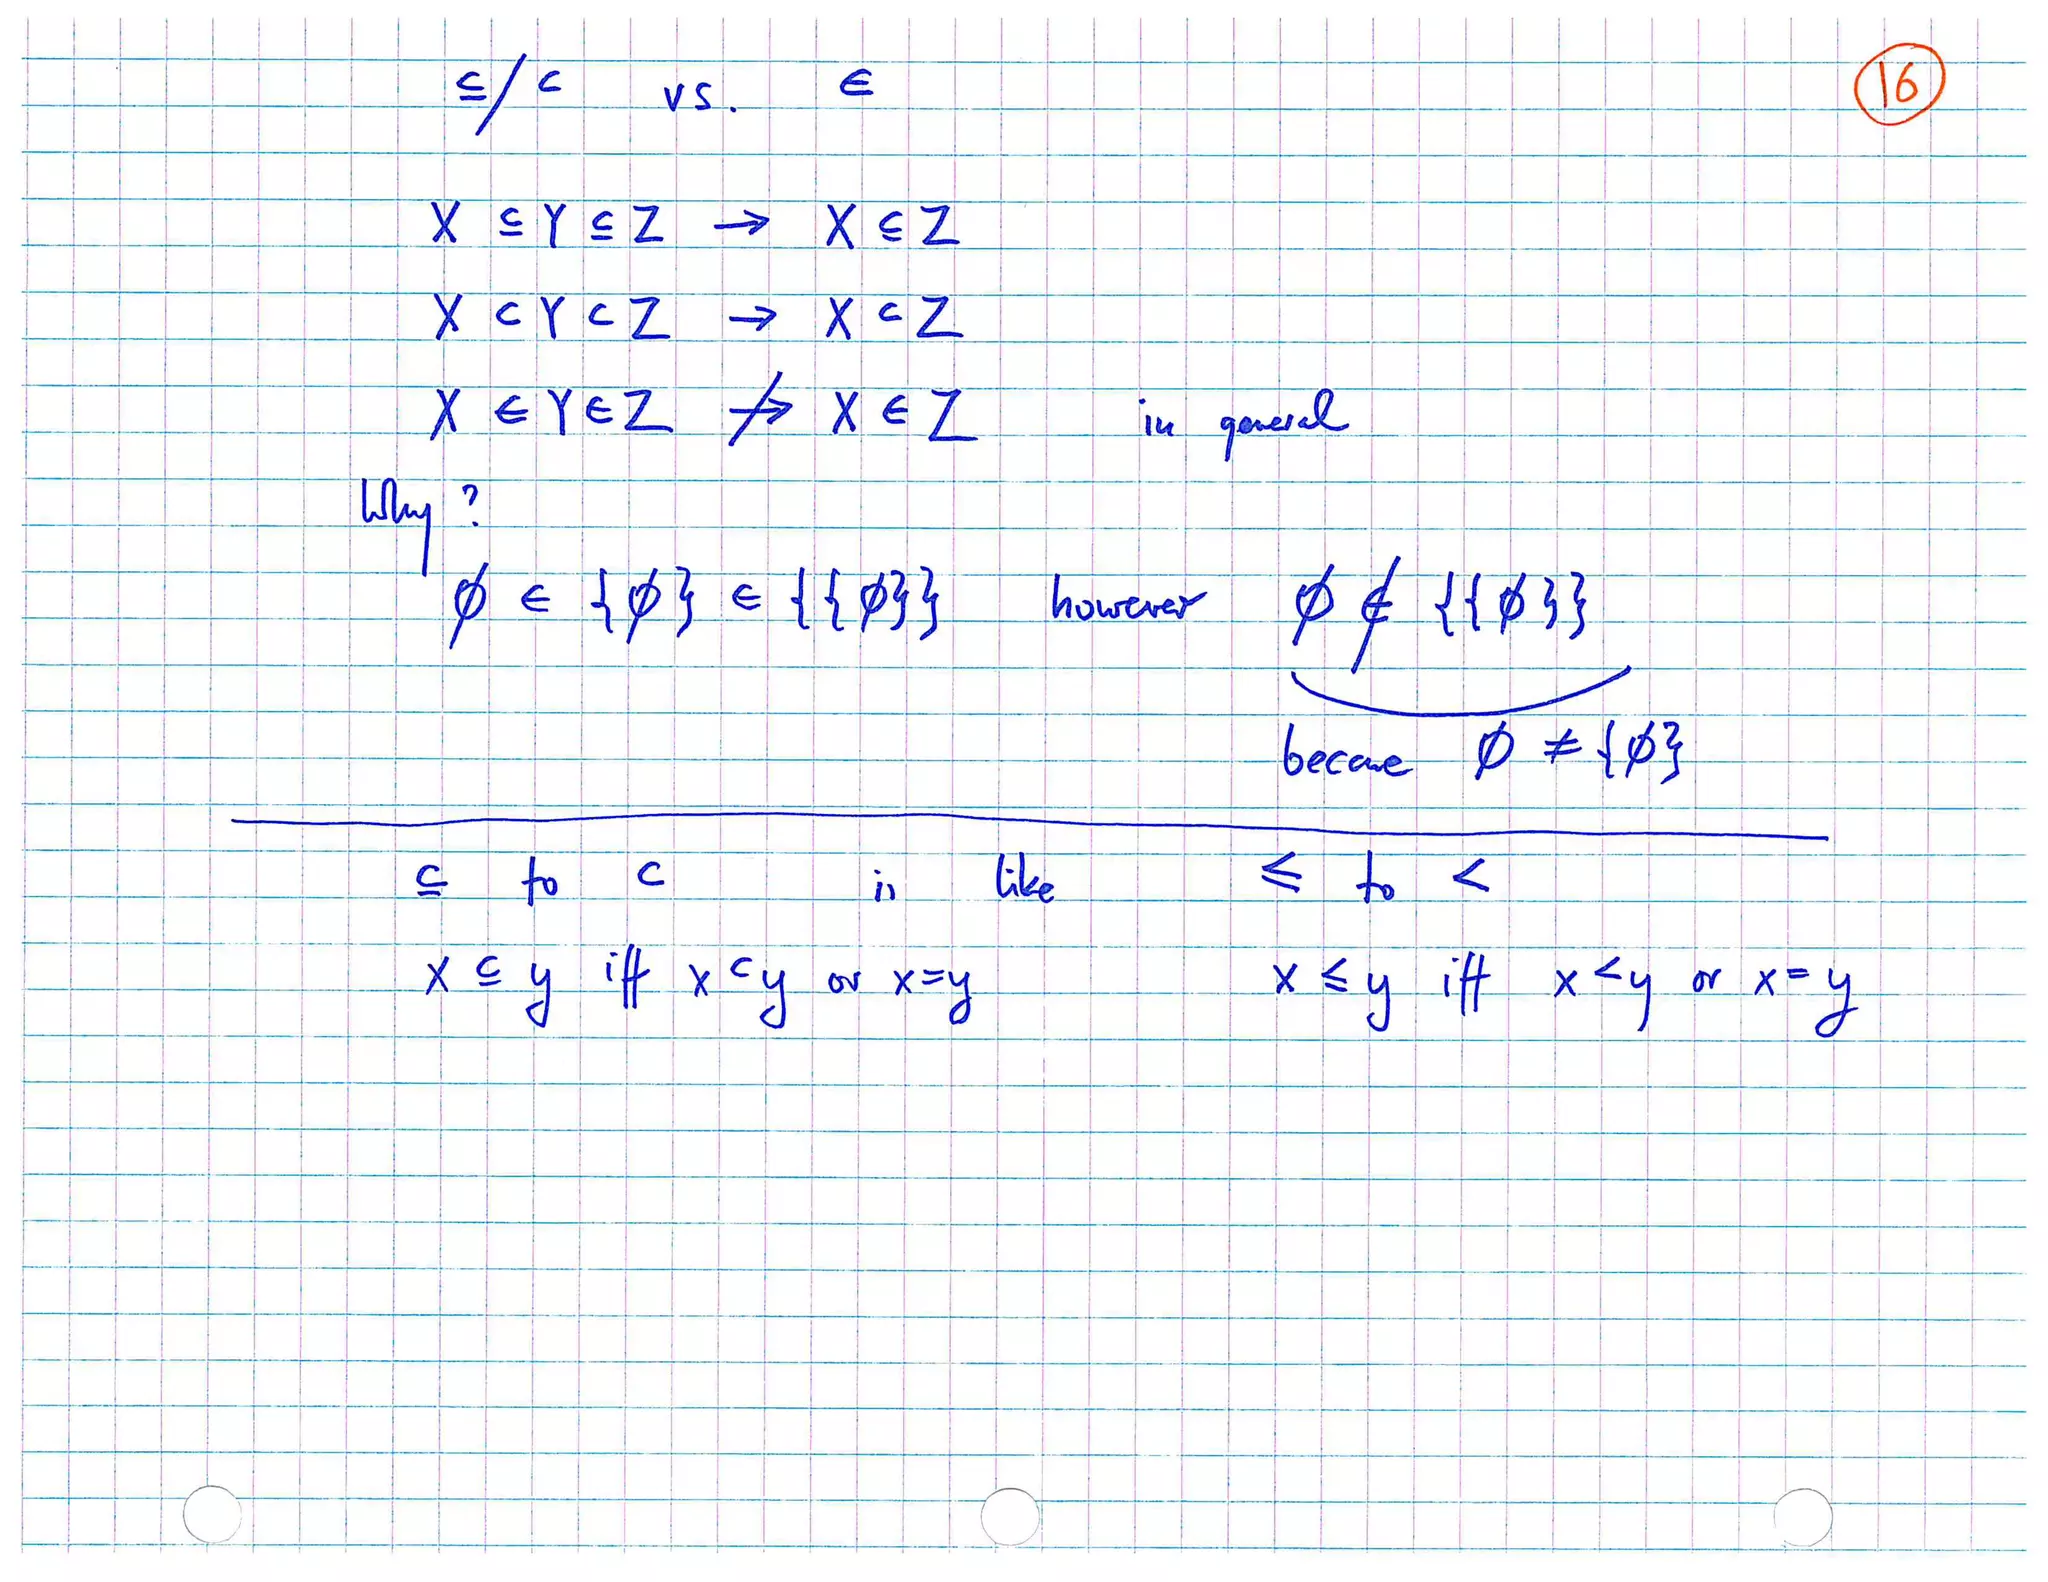 ⊆/⊂ vs. ∈
16
X ⊆ Y ⊆ Z → X ⊆ Z
X ⊂ Y ⊂ Z → X ⊂ Z
X ∈ Y ∈ Z ↛ X ∈ Z in general
Why?
∅ ∈ {∅} ∈ {{∅}} however ∅ ∉ {{∅}}
because ∅ ≠ {∅}
⊆ to ⊂ is like ≤ to <
x ⊆ y iff x ⊂ y or x=y x ≤ y iff x < y or x = y